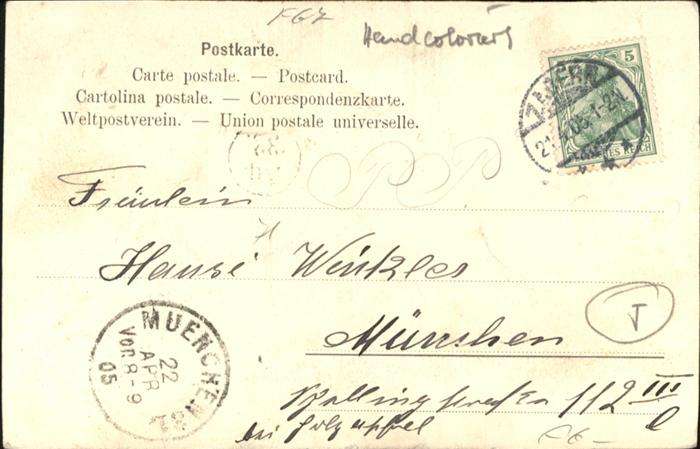 F67
Handcoloriert
Postkarte.
Carte postale. — Postcard.
Cartolina postale. — Correspondenzkarte.
Weltpostverein. — Union postale universelle.
5
1-2N.
REICH
Fräulein
Hansi Winkler
München
112 III
l
bei
J
MUENCHEN
22
APR
VOR 8-9
05